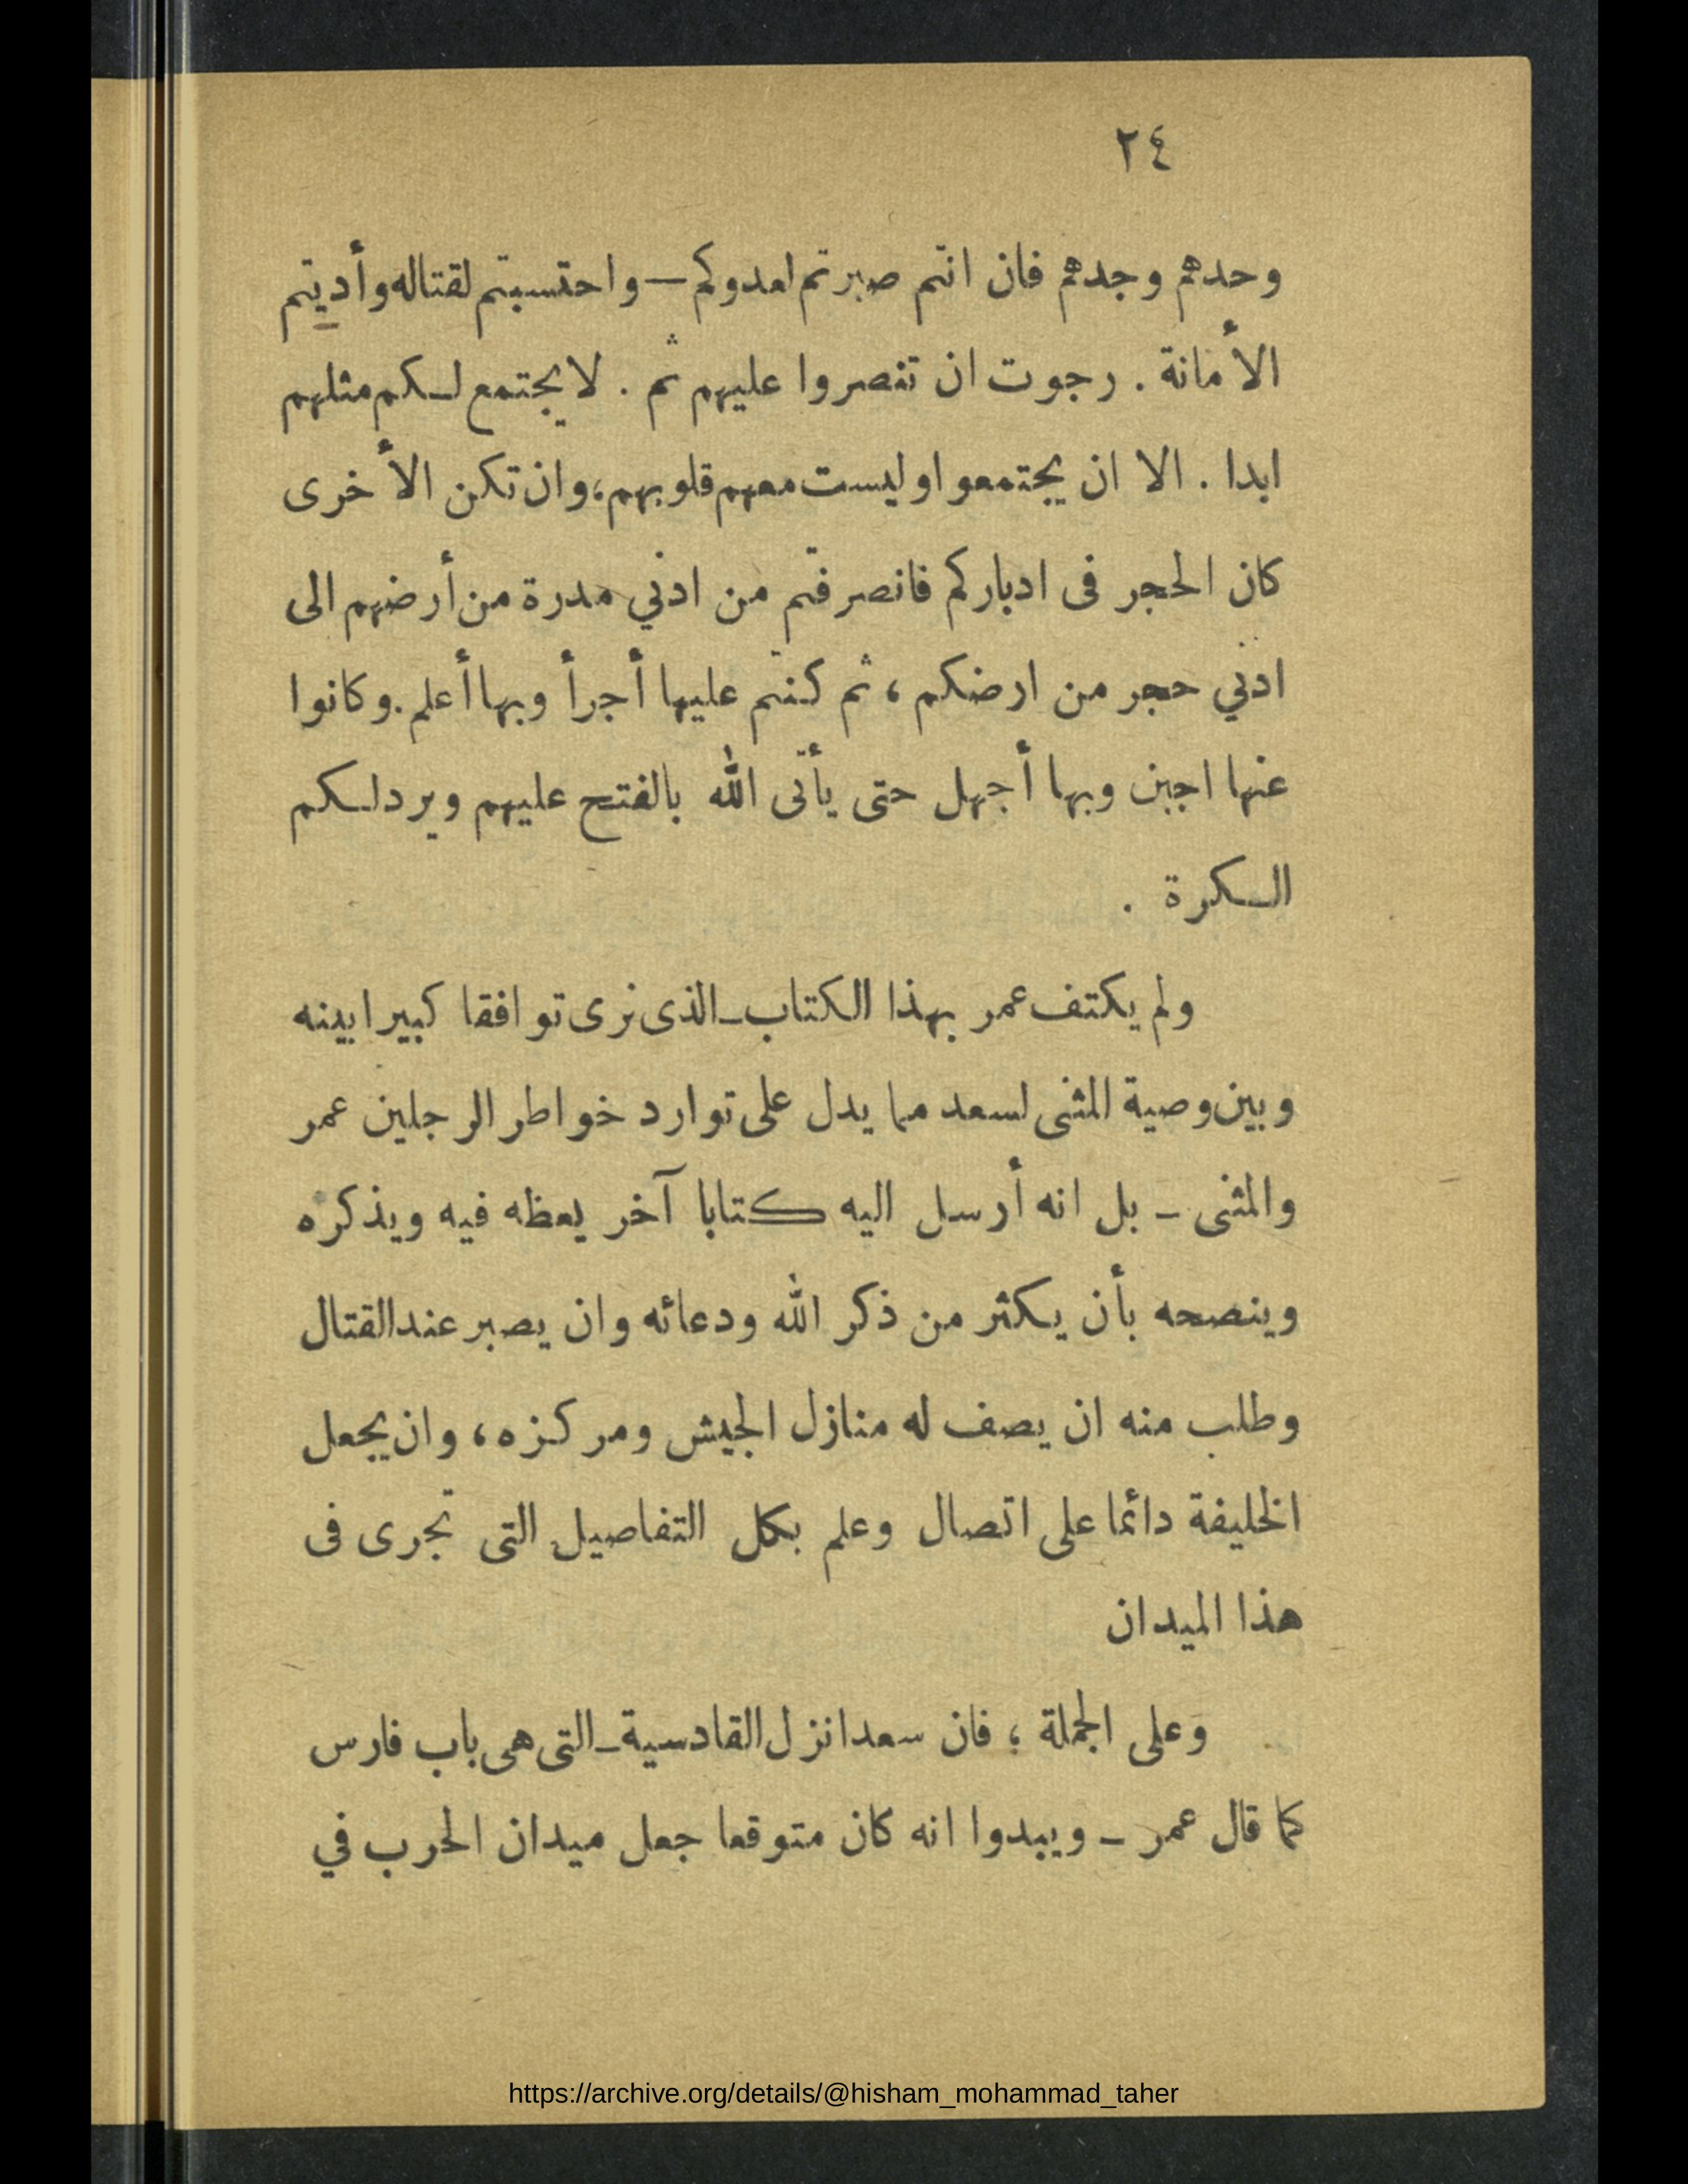 ٢٤
وحدهم وجدهم فان انتم صبرتم لعدوكم — واحتسبتم لقتاله وأديتم
الأمانة . رجوت ان تنصروا عليهم ثم . لا يجتمع لكم مثلهم
ابدا . الا ان يجتمعوا وليست معهم قلوبهم، وان تكن الأخرى
كان الحجر فى ادباركم فانصرفتم من ادني مدرة من أرضهم الى
ادني حجر من ارضكم ، ثم كنتم عليها أجرأ وبها أعلم . وكانوا
عنها اجبن وبها أجهل حتى يأتى الله بالفتح عليهم ويرد لكم
الكرة .
ولم يكتف عمر بهذا الكتاب ـ الذى نرى توافقا كبيرا بينه
وبين وصية المثنى لسعد مما يدل على توارد خواطر الرجلين عمر
والمثنى ـ بل انه أرسل اليه كتابا آخر يعظه فيه ويذكره
وينصحه بأن يكثر من ذكر الله ودعائه وان يصبر عند القتال
وطلب منه ان يصف له منازل الجيش ومركزه ، وان يجعل
الخليفة دائما على اتصال وعلم بكل التفاصيل التى تجرى فى
هذا الميدان
وعلى الجملة ؛ فان سعدا نزل القادسية ـ التى هى باب فارس
كما قال عمر ـ ويبدوا انه كان متوقعا جعل ميدان الحرب في
https://archive.org/details/@hisham_mohammad_taher